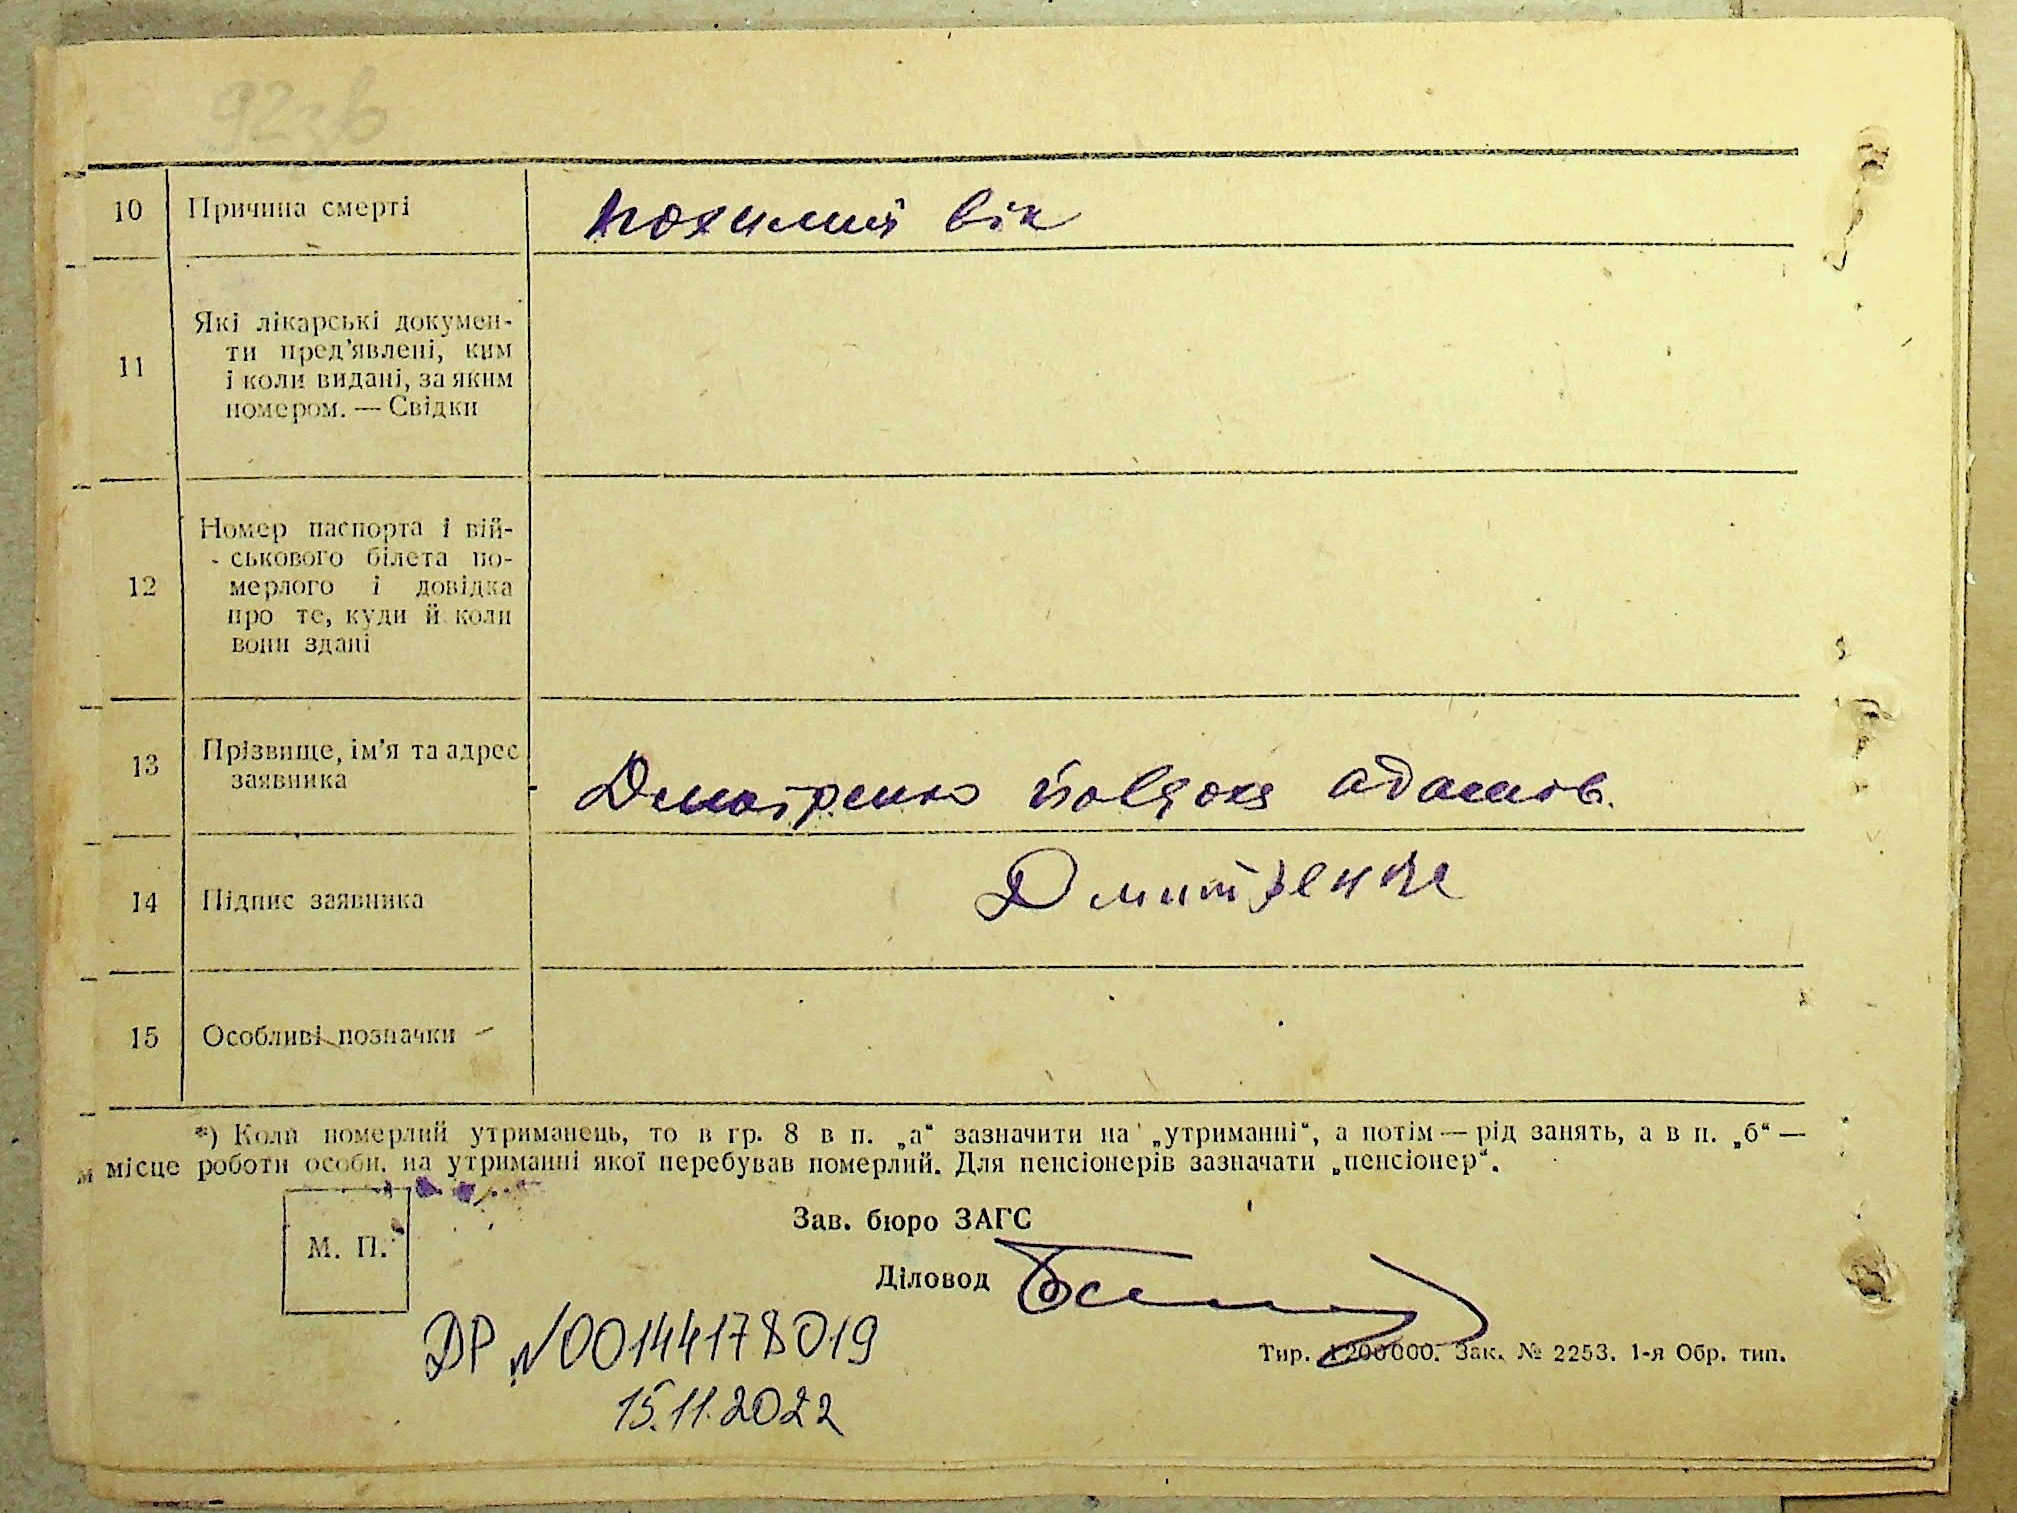 92зв
10 Причина смерті похилий вік
11 Які лікарські докумен-
ти пред'явлені, ким
і коли видані, за яким
номером. — Свідки
12 Номер паспорта і вій-
ськового білета по-
мерлого і довідка
про те, куди й коли
вони здані
13 Прізвище, ім'я та адрес
заявника
Дмитренко адамов.
14 Підпис заявника Дмитренко
15 Особливі позначки
*) Коли померлий утриманець, то в гр. 8 в п. „а“ зазначити на „утриманні“, а потім — рід занять, а в п. „б“ —
місце роботи особи, на утриманні якої перебував померлий. Для пенсіонерів зазначати „пенсіонер“.
М. П.
Зав. бюро ЗАГС
Діловод
ДР №00144178019
15.11.2022
Тир. 1200000. Зак. № 2253. 1-я Обр. тип.